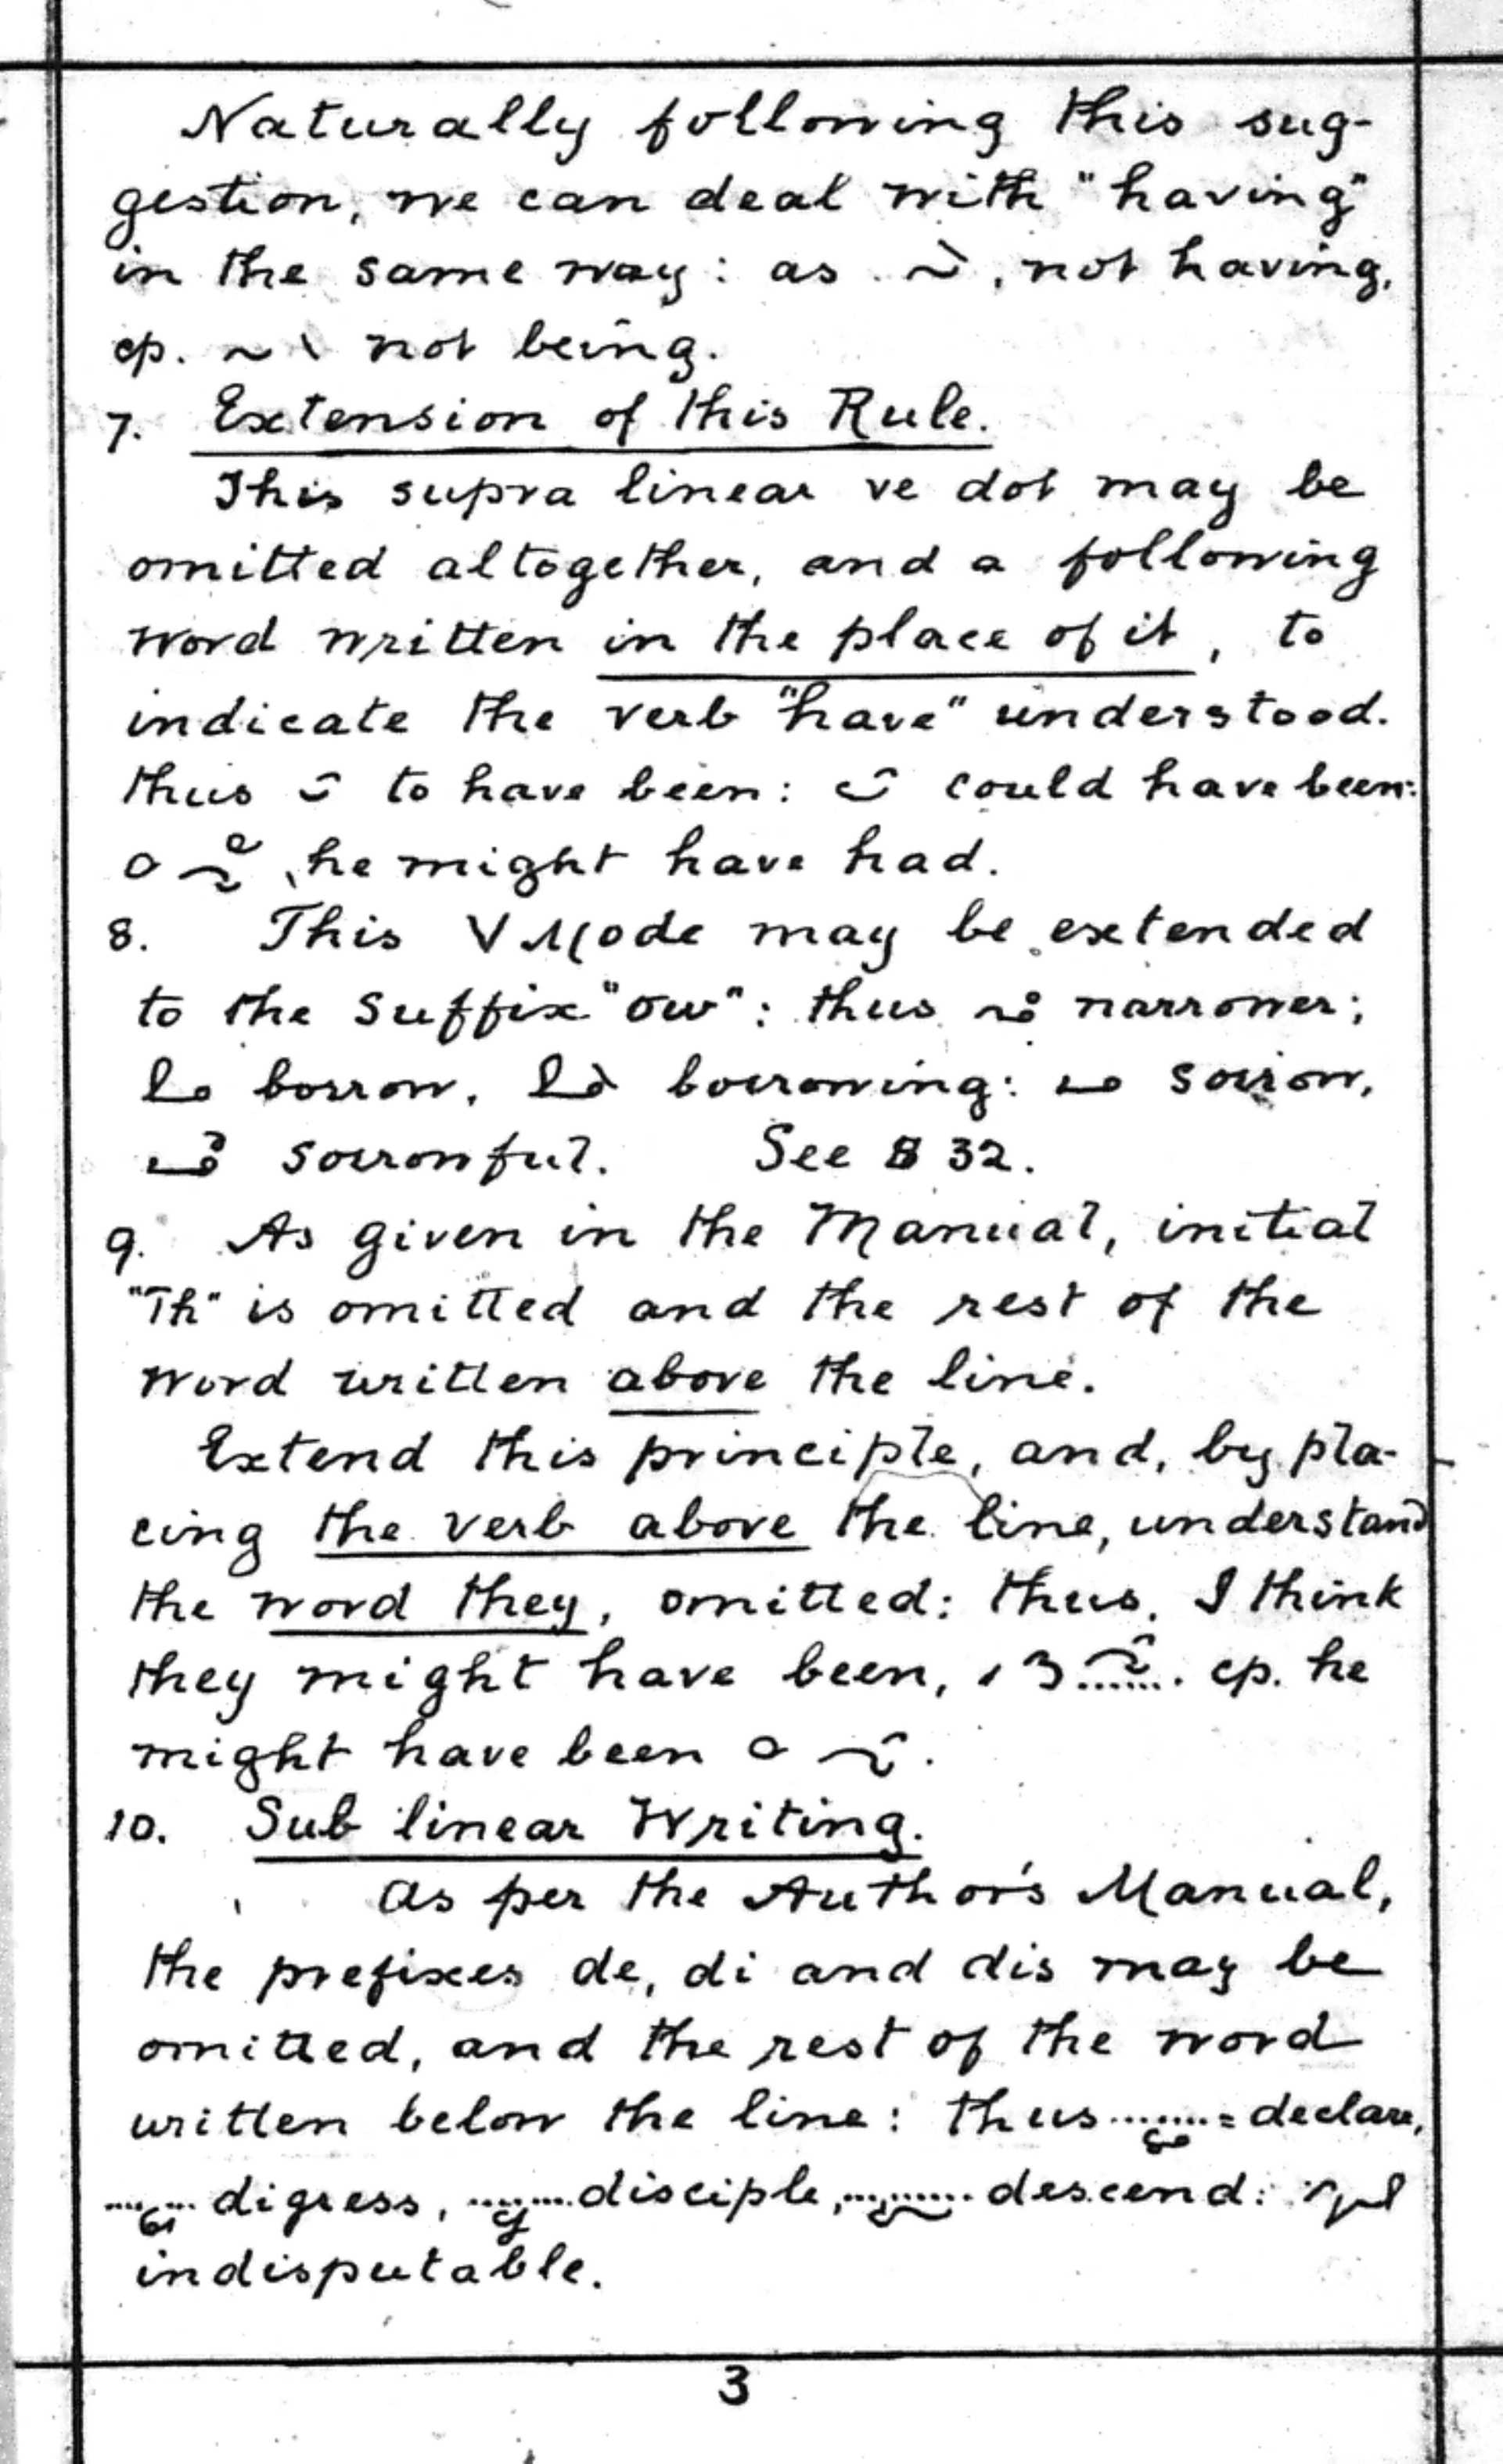 Naturally following this sug-
gestion, we can deal with "having"
in the same way: as , not having,
cp. not being.
7. Extension of this Rule.
This supra linear ve dot may be
omitted altogether, and a following
word written in the place of it, to
indicate the verb "have" understood.
thus to have been: could have been:
he might have had.
8. This V Mode may be extended
to the suffix "ow": thus narrower;
borrow, borrowing: sorrow,
sorrowful. See § 32.
9. As given in the Manual, initial
"Th" is omitted and the rest of the
word written above the line.
Extend this principle, and, by pla-
cing the verb above the line, understand
the word they, omitted: thus, I think
they might have been, cp. he
might have been
10. Sub linear Writing.
As per the Author's Manual,
the prefixes de, di and dis may be
omitted, and the rest of the word
written below the line: thus = declare,
digress, disciple, descend:
indisputable.
3